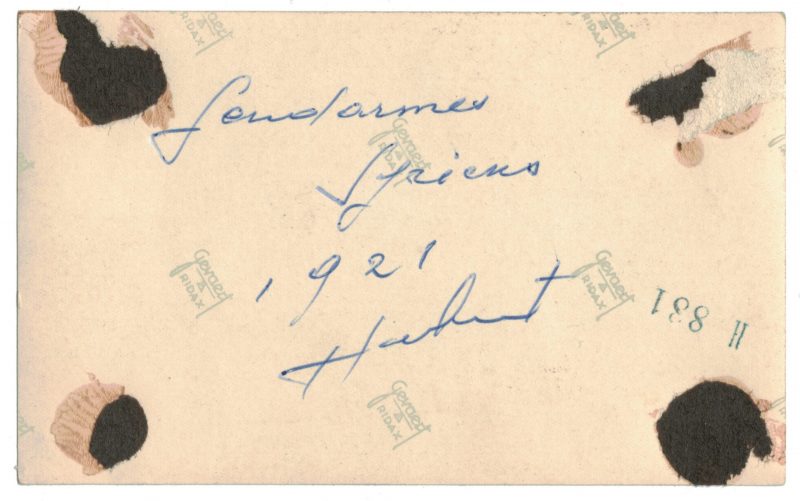 Gendarmes
Syriens
1921
Gevaert
RIDAX
Gevaert
RIDAX
Gevaert
RIDAX
Gevaert
RIDAX
Gevaert
RIDAX
Gevaert
RIDAX
H 831